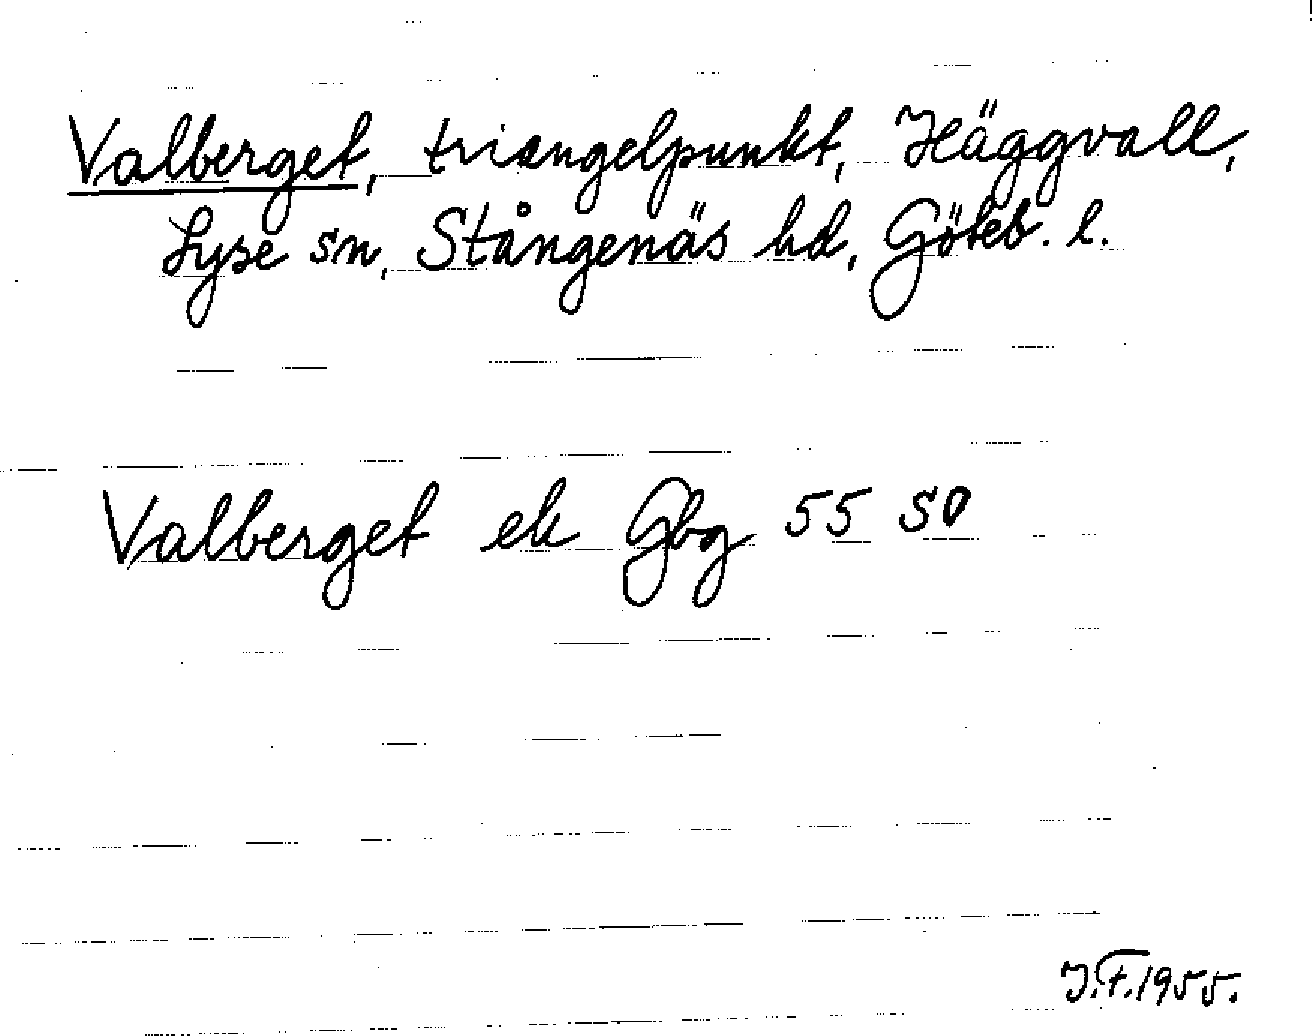 Valberget, triangelpunkt, Häggvall,
Lyse sn, Stångenäs hd, Göteb. l.
Valberget ek Gbg 55 SO
J.F. 1955.